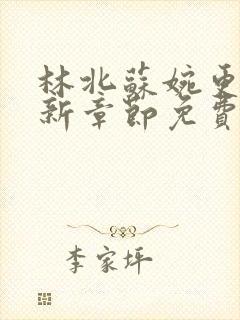 林北蘇婉更
新章節免費
李家坪